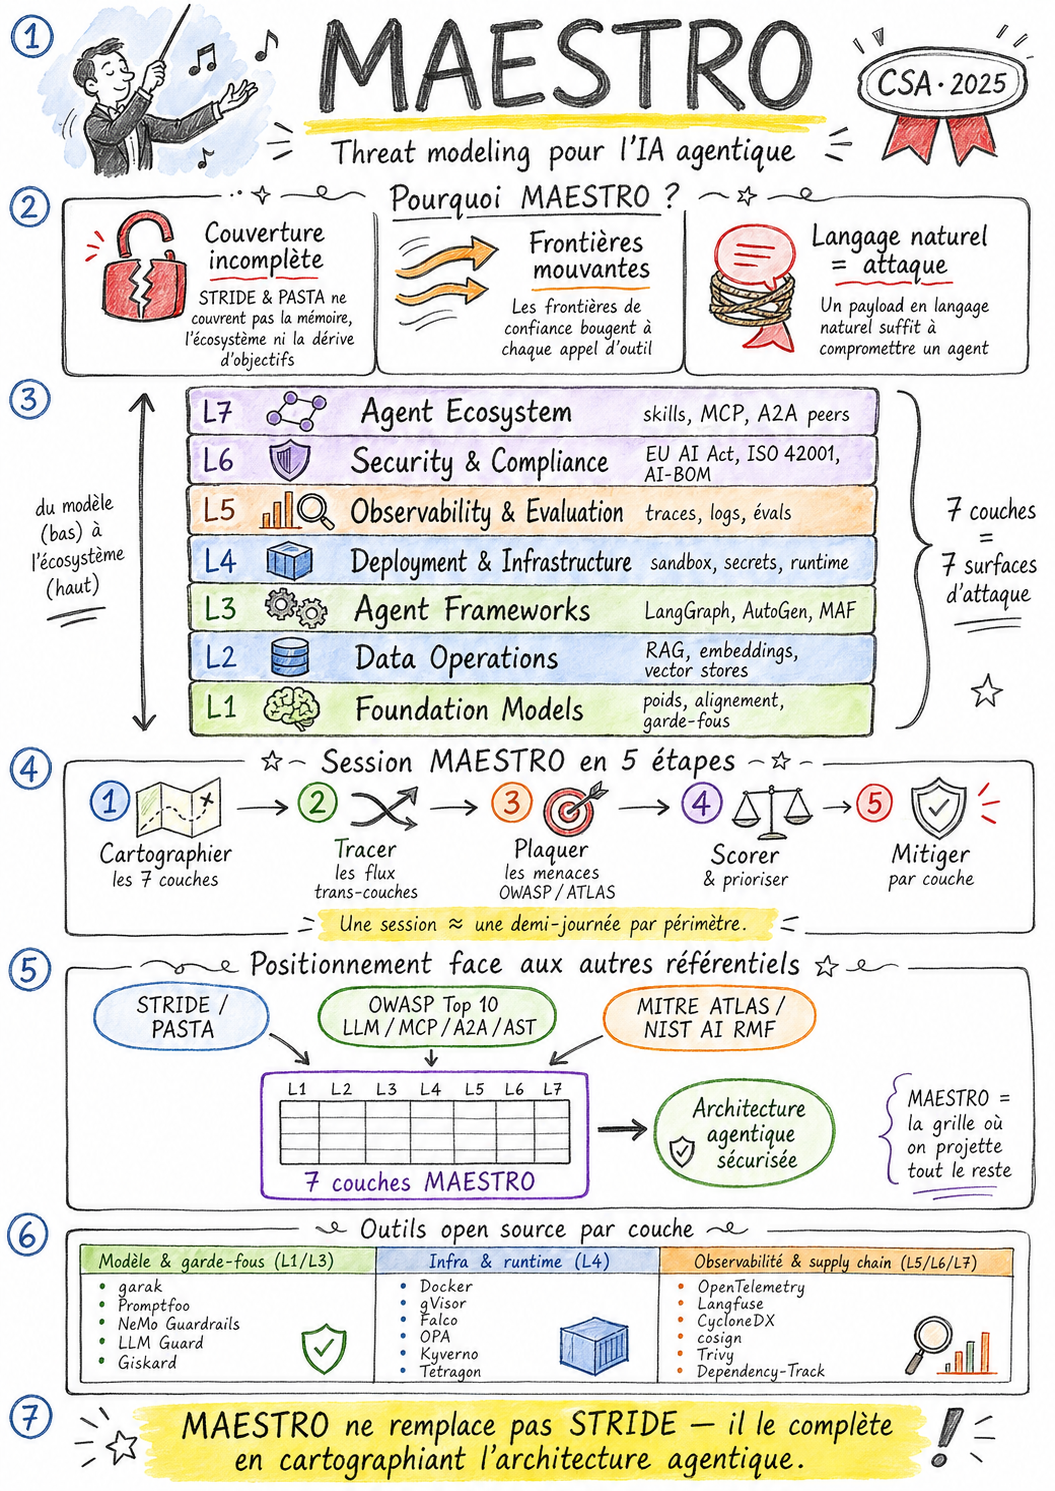 1
MAESTRO
CSA · 2025
Threat modeling pour l'IA agentique
2
Pourquoi MAESTRO ?
Couverture
incomplète
STRIDE & PASTA ne
couvrent pas la mémoire,
l'écosystème ni la dérive
d'objectifs
Frontières
mouvantes
Les frontières de
confiance bougent à
chaque appel d'outil
Langage naturel
= attaque
Un payload en langage
naturel suffit à
compromettre un agent
3
du modèle
(bas) à
l'écosystème
(haut)
L7 Agent Ecosystem skills, MCP, A2A peers
L6 Security & Compliance EU AI Act, ISO 42001,
AI-BOM
L5 Observability & Evaluation traces, logs, évals
L4 Deployment & Infrastructure sandbox, secrets, runtime
L3 Agent Frameworks LangGraph, AutoGen, MAF
L2 Data Operations RAG, embeddings,
vector stores
L1 Foundation Models poids, alignement,
garde-fous
7 couches
=
7 surfaces
d'attaque
4
Session MAESTRO en 5 étapes
1
Cartographier
les 7 couches
2
Tracer
les flux
trans-couches
3
Plaquer
les menaces
OWASP / ATLAS
4
Scorer
& prioriser
5
Mitiger
par couche
Une session ≈ une demi-journée par périmètre.
5
Positionnement face aux autres référentiels
STRIDE /
PASTA
OWASP Top 10
LLM / MCP / A2A / AST
MITRE ATLAS /
NIST AI RMF
L1 L2 L3 L4 L5 L6 L7
7 couches MAESTRO
Architecture
agentique
sécurisée
MAESTRO =
la grille où
on projette
tout le reste
6
Outils open source par couche
Modèle & garde-fous (L1/L3)
• garak
• Promptfoo
• NeMo Guardrails
• LLM Guard
• Giskard
Infra & runtime (L4)
• Docker
• gVisor
• Falco
• OPA
• Kyverno
• Tetragon
Observabilité & supply chain (L5/L6/L7)
• OpenTelemetry
• Langfuse
• CycloneDX
• cosign
• Trivy
• Dependency-Track
7
MAESTRO ne remplace pas STRIDE — il le complète
en cartographiant l'architecture agentique.
!